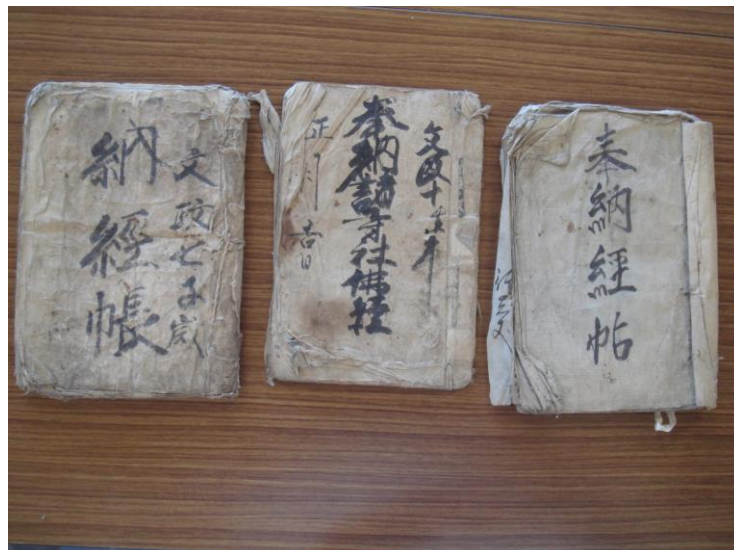 文政七
納經帳
文政十亥年
奉納諸寺社佛経
正月吉日
奉納経帖